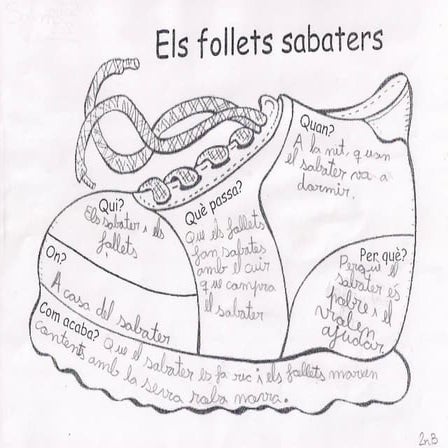 Els follets sabaters
Quan?
A la nit, quan
el sabater va a
dormir.
Qui?
Els sabater i els
follets
Què passa?
Que els follets
fan sabates
amb el cuir
que compra
el sabater
On?
A casa del sabater
Per què?
Perquè el
sabater és
pobre i el
volen
ajudar
Com acaba? Que el sabater es fa ric i els follets marxen
contents amb la seva roba nova.
2n B